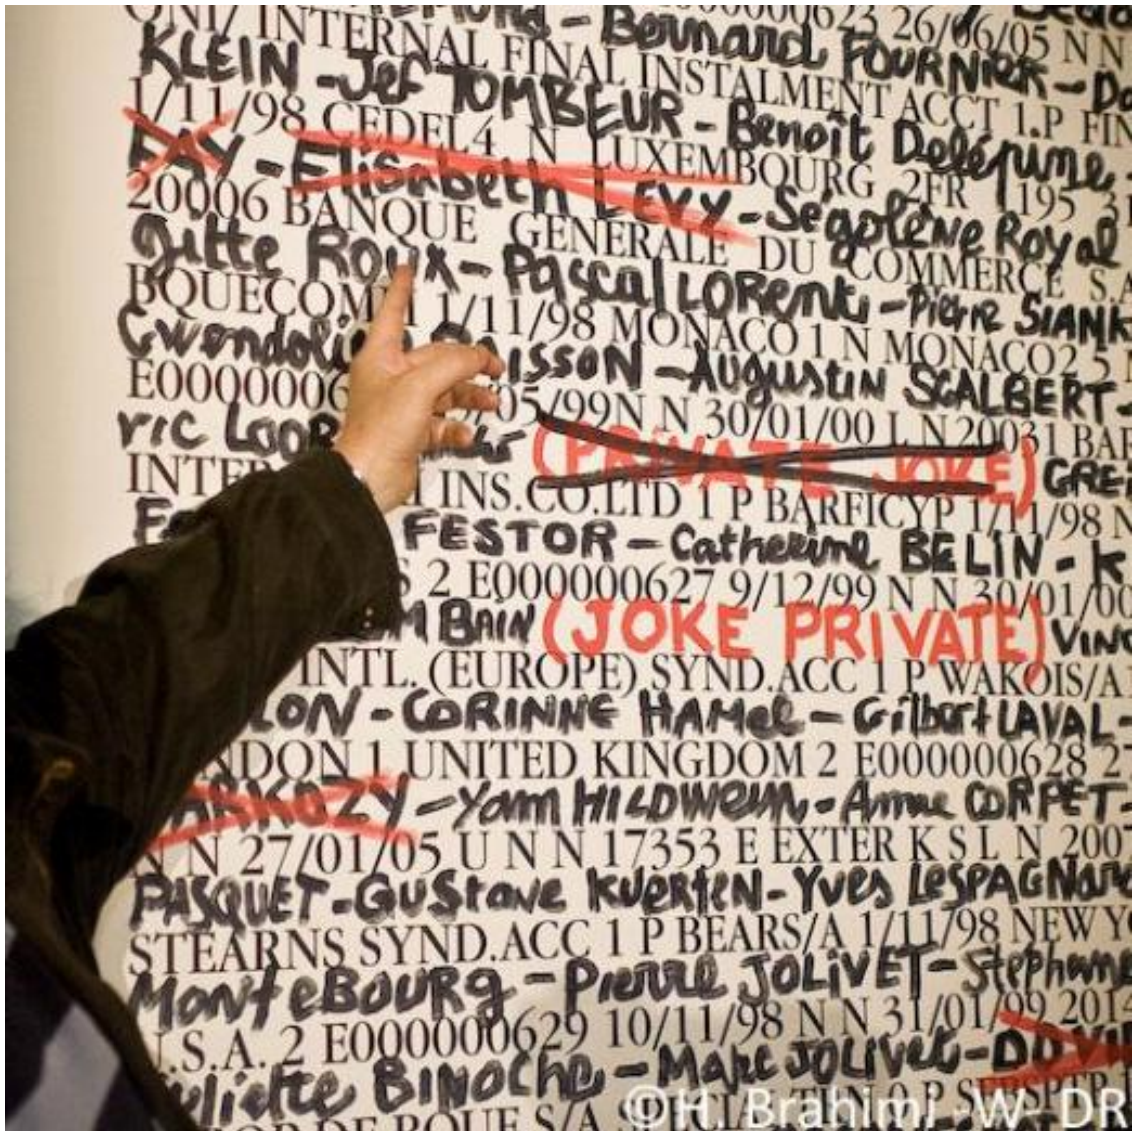 Bernard FOURNIER - Do
ONI/ INTERNAL FINAL INSTALMENT ACCT 1.P FIN
KLEIN - Jef TOMBEUR - Benoît Delépine -
1/11/98 CEDEL4 N LUXEMBOURG 2FR 1195 31
FAY - Elisabeth LEVY - Ségolène Royal
20006 BANQUE GENERALE DU COMMERCE S.A
gitte Roux - Pascal LORent - Pierre SIANK
BQUECOM 1/11/98 MONACO 1 N MONACO2 5 N
Gwendoli ISSON - Augustin SCALBERT -
E0000006 /05/99N N 30/01/00 L N20031 BAR
ric LOOR (PRIVATE JOKE) GRE
INTE INS.CO.LTD 1 P BARFICYP 1/11/98 N
FESTOR - Catherine BELIN - K
2 E000000627 9/12/99 N N 30/01/00
M BAIN (JOKE PRIVATE) VINC
INTL. (EUROPE) SYND.ACC 1 P WAKOIS/A
LON - CORINNE HAMEL - Gilbert LAVAL -
NDON 1 UNITED KINGDOM 2 E000000628 2
ARKOZY - Yann HILDWEIN - Anne CORPET -
N N 27/01/05 U N N 17353 E EXTER K S L N 200
PASQUET - GUStave KUERTEN - Yves LESPAGNARD
STEARNS SYND.ACC 1 P BEARS/A 1/11/98 NEW YO
MonteBOURG - Pierre JOLIVET - Stephane
.S.A. 2 E000000629 10/11/98 N N 31/01/99 2014
uliette BINOCHE - Marc JOLIVET -
©H. Brahimi -W- DR